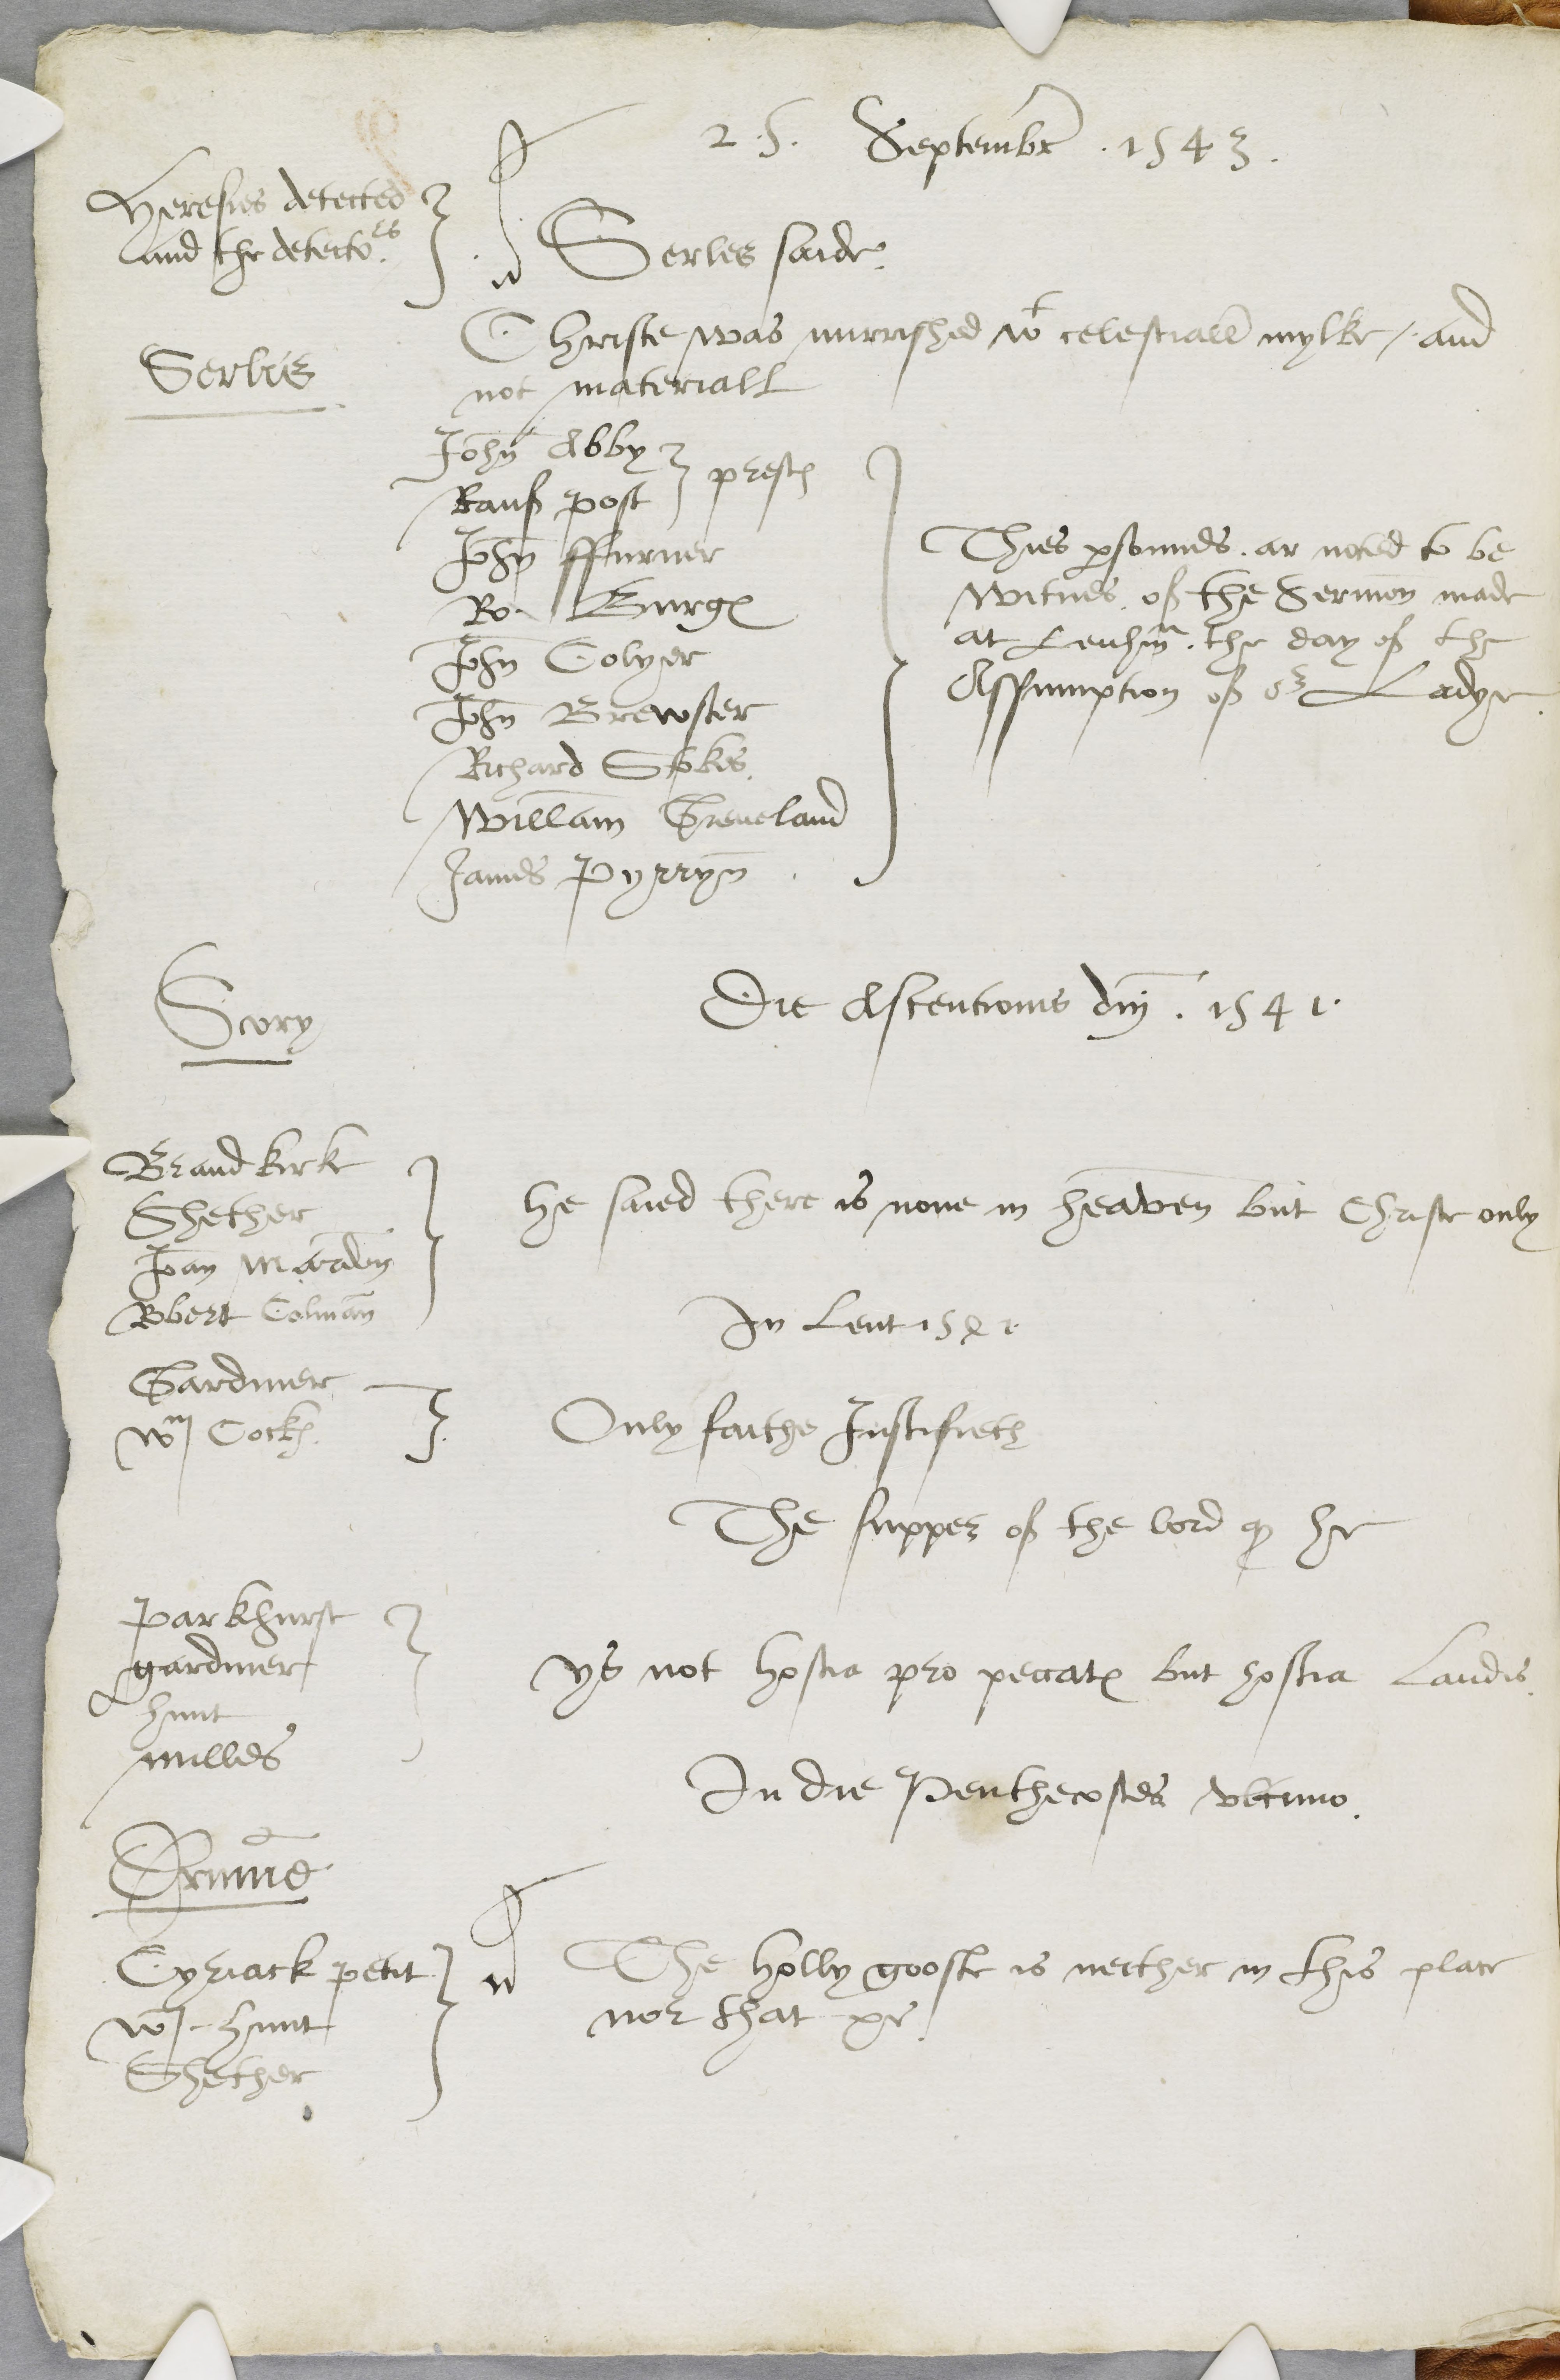 25. Septembr . 1543.
Heresies detected
and the detectores.
Serles saide.
Serles
Christe was nurrished wt celestiall mylke, and
not materiall
John Abby
Rauf Post
prest
John ffurner
Ro. Burg
John Colyer
John Brewster
Richard Stokes.
William Greneland
James Pyrryn
Thies psonnes. ar noted to be
Witnes. of the Sermon made
at Lenham. the day of the
Assumption of or Ladye.
Scory
Die Ascentionis dnj . 1541.
Brandkirke
Shether
Joan Mardon
Robert Colman
he saied there is none in heaven but Christe only
In Lent 1541
Gardiner
Wm Cock
Only faithe Justifieth
The supper of the lord q he
Parkhurst
gardiner
hunt
milles
ys not hostia pro peccat but hostia Laudis.
In die Penthecostes ultimo.
Drumme
Cyriack petit
Wm hunt
Shether
The holly gooste is neither in this place
nor that pe